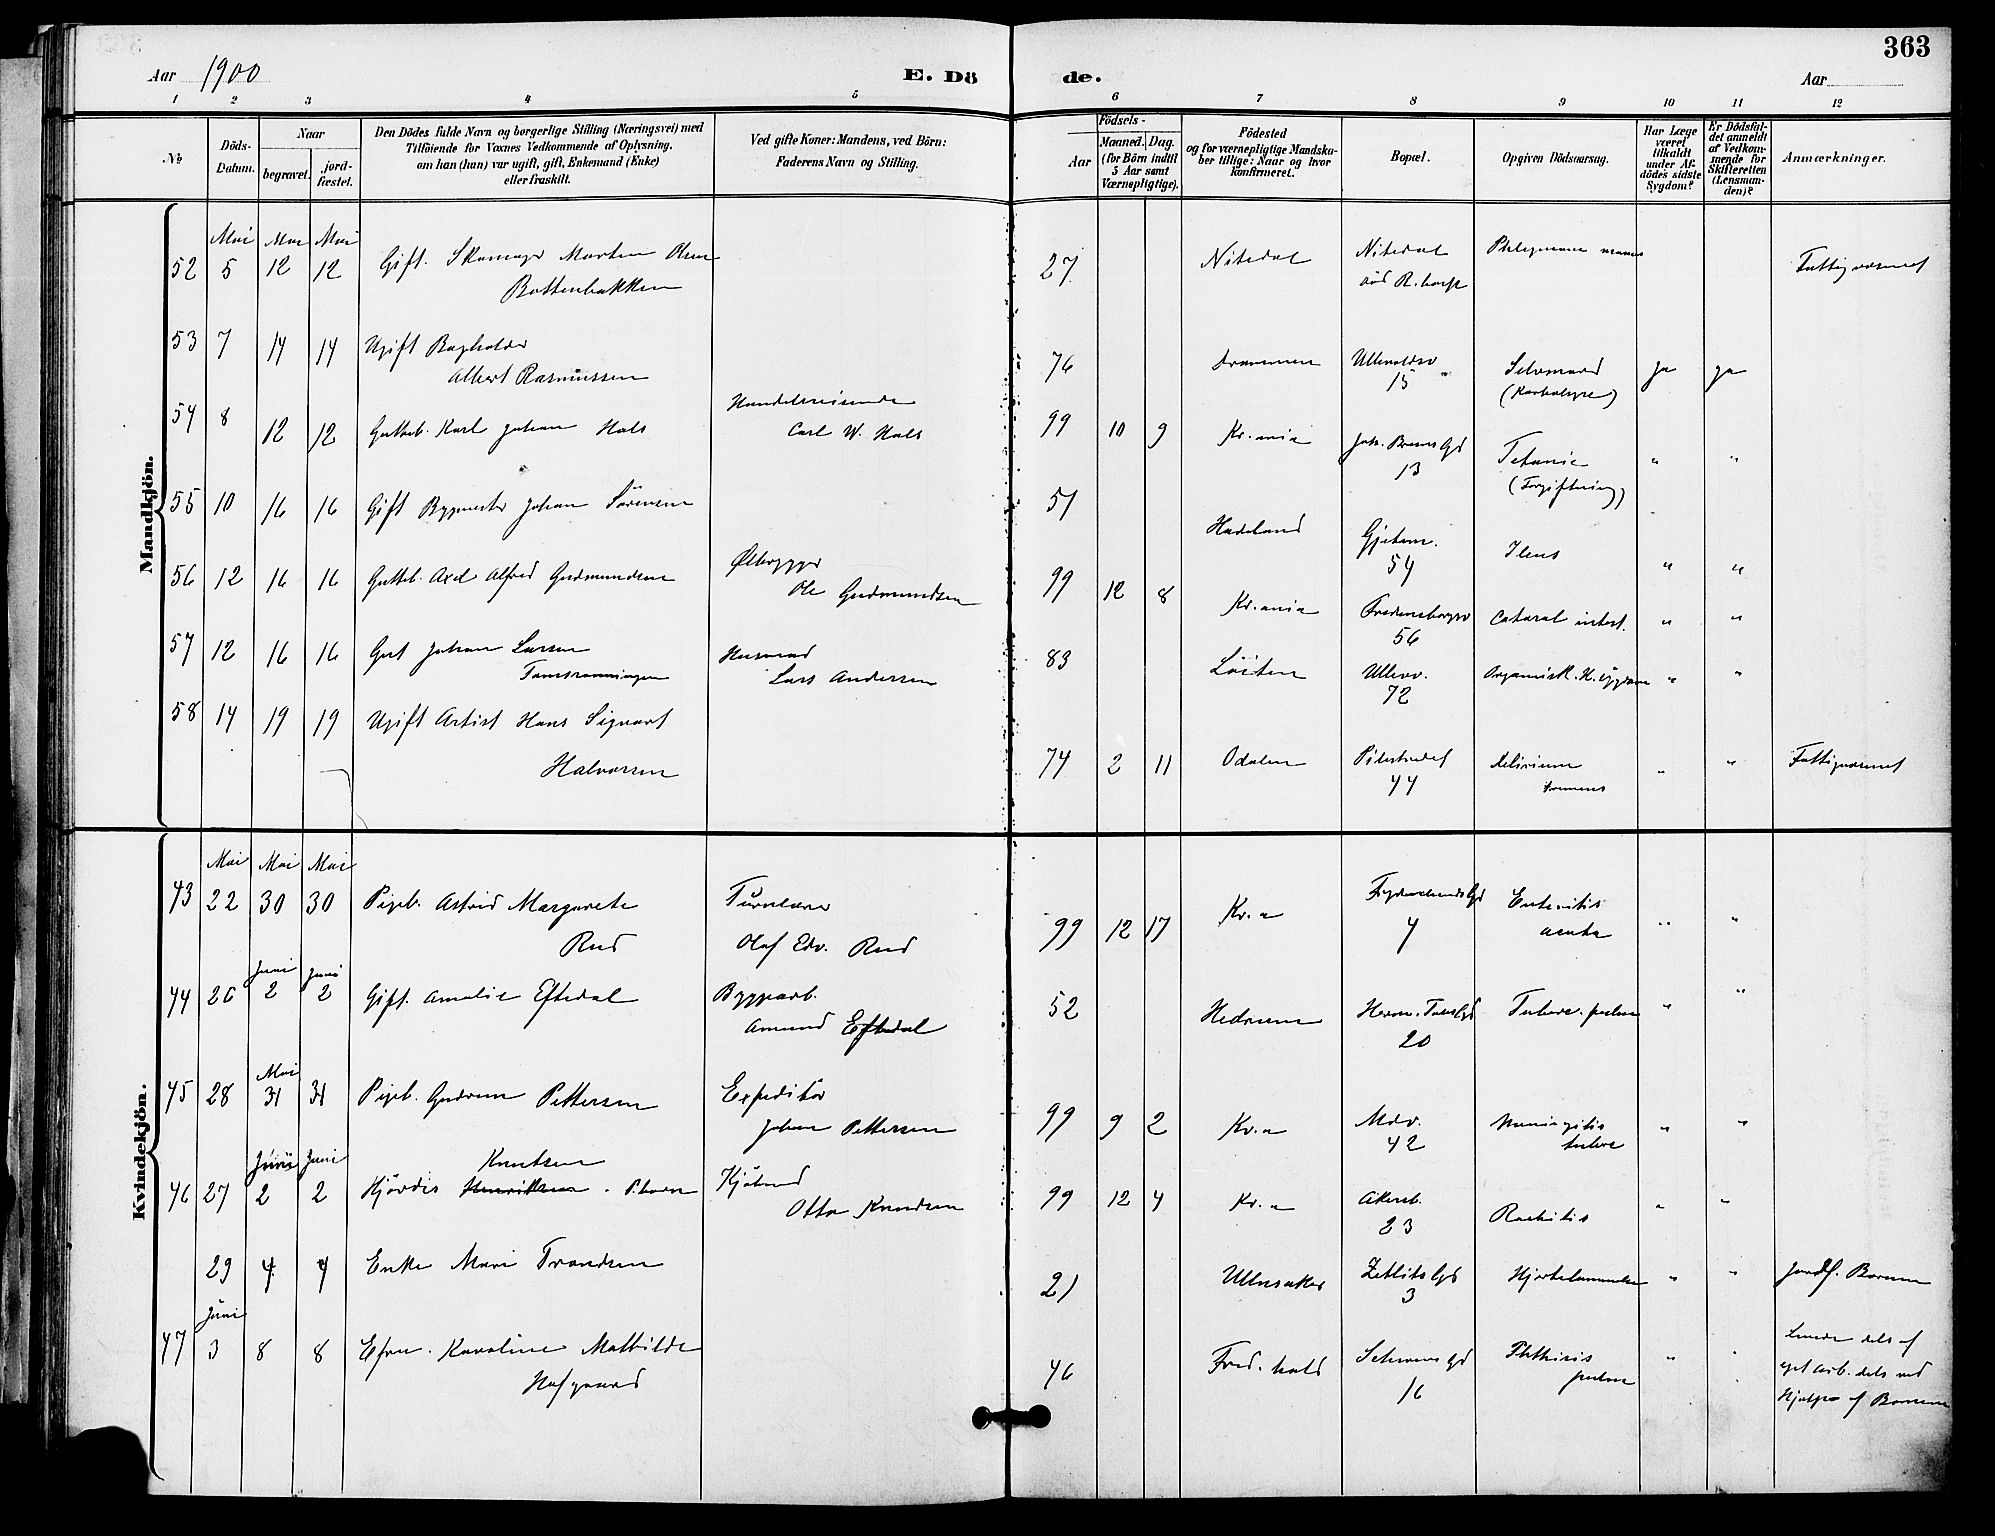 363
Aar 1900
E. Dö
de.
Aar
1 2 3 4 5 6 7 8 9 10 11 12
No
Döds-
Datum.
Naar
begravet.
jord-
fæstet.
Den Dödes fulde Navn og borgerlige Stilling (Næringsvei) med
Tilföiende for Voxnes Vedkommende af Oplysning,
om han (hun) var ugift, gift, Enkemand (Enke)
eller fraskilt.
Ved gifte Koner: Mandens, ved Börn:
Faderens Navn og Stilling.
Födsels-
Aar
Maaned. Dag.
(for Börn indtil
5 Aar samt
Værnepligtige).
Födested
og for værnepligtige Mandsku-
ber tillige: Naar og hvor
konfirmeret.
Bopæl.
Opgiven Dödsaarsag.
Har Læge
været
tilkaldt
under Af-
dödes sidste
Sygdom?
Er Dödsfal-
det anmeldt
af Vedkom-
mende for
Skifteretten
(Lensman-
den)?
Anmærkninger.
Mandkjön.
Mai Mai Mai
52 5 12 12 Gift. Skomager Morten Olsen 27 Nitedal Nitedal Fattigvæsenet
Bottenbakken
53 7 14 14 Ugift Bogholder 76 Drammen Ullevoldsv Selvmord ja ja
Albert Rasmussen 15 (Karbolsyre)
54 8 12 12 Gutteb. Karl Johan Hals Handelsreisende 99 10 9 Kr.ania Joh. Bruns Gd Tetanie " "
Carl W. Hals 13 (Forgiftning)
55 10 16 16 Gift Bygmester Johan Sörensen 51 Hadeland Gjetem. Ileus " "
54
56 12 16 16 Guttb. Axel Alfred Gudmundsen Ølbrygger 99 12 8 Kr.ania Fredensborgv Cataral intest. " "
Ole Gudmundsen 56
57 12 16 16 Gut Johan Larsen Husmand 83 Löiten Ullevv. Organisk. H. sygdom " "
Lars Andersen 72
58 14 19 19 Ugift Artist Hans Sigvart 74 2 11 Odalen Pilestredet delirium " " Fattigvæsenet
Halvorsen 44 tremens
Kvindekjön.
Mai Mai Mai
43 22 30 30 Pigeb. Astrid Margarete Turnlærer 99 12 17 Kr.a Enteritis " "
Rud Olaf Edv. Rud 4 acuta
Juni Juni
44 26 2 2 Gift. Amalie Eftedal Byggarb. 52 Hedrum Herm. Foss Gd Tuberc. pulm " "
Amund Eftedal 20
Mai
45 28 31 31 Pigeb. Gudrun Pettersen Expeditör 99 9 2 Kr.a Mdv. Meningitis " "
Johan Pettersen 42 tuberc
Juni Juni
Knutsen
46 27 2 2 Hjördis Henriksen. P.barn Kjöbmd 99 12 4 Kr.a Akersb. Rachitis " "
Otto Knudsen 23
29 4 4 Enke Mari Trondsen 21 Ullensaker Zetlitz Gd Hjertelammelse " "
3
Juni
47 3 8 8 Efru. Karoline Mathilde 46 Fred.hald Schwensgd Phthisis " " Levede dels af
Hofgaard 16 pulm eget arb. dels ved
Hjælp af